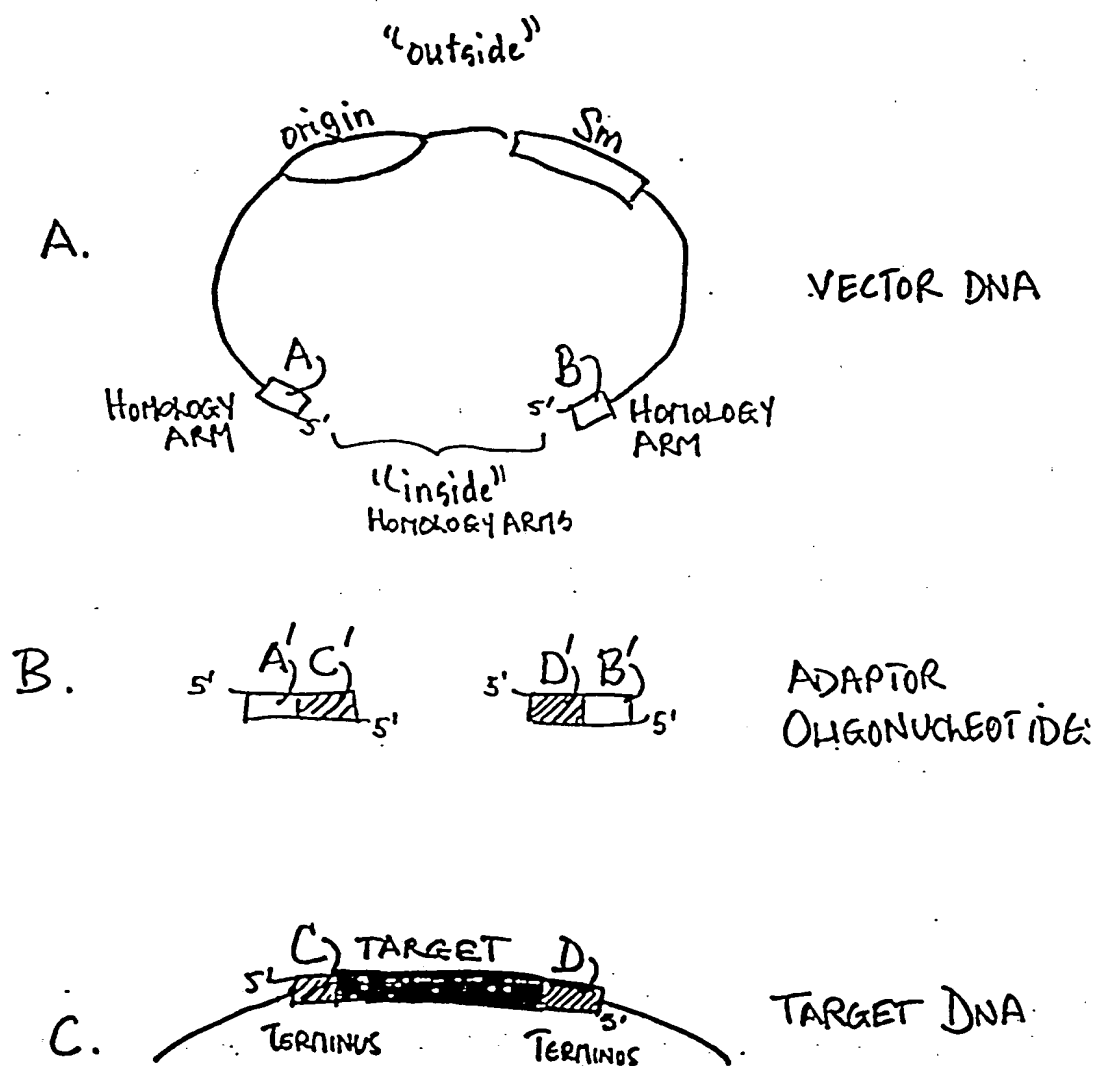 "outside"
origin
Sm
A.
VECTOR DNA
A
B
HOMOLOGY
ARM
5'
5'
HOMOLOGY
ARM
"inside"
HOMOLOGY ARMS
B.
5'
A' C'
5'
5'
D' B'
5'
ADAPTOR
OLIGONUCLEOTIDE:
C.
5'
C TARGET D
5'
TERMINUS
TERMINOS
TARGET DNA